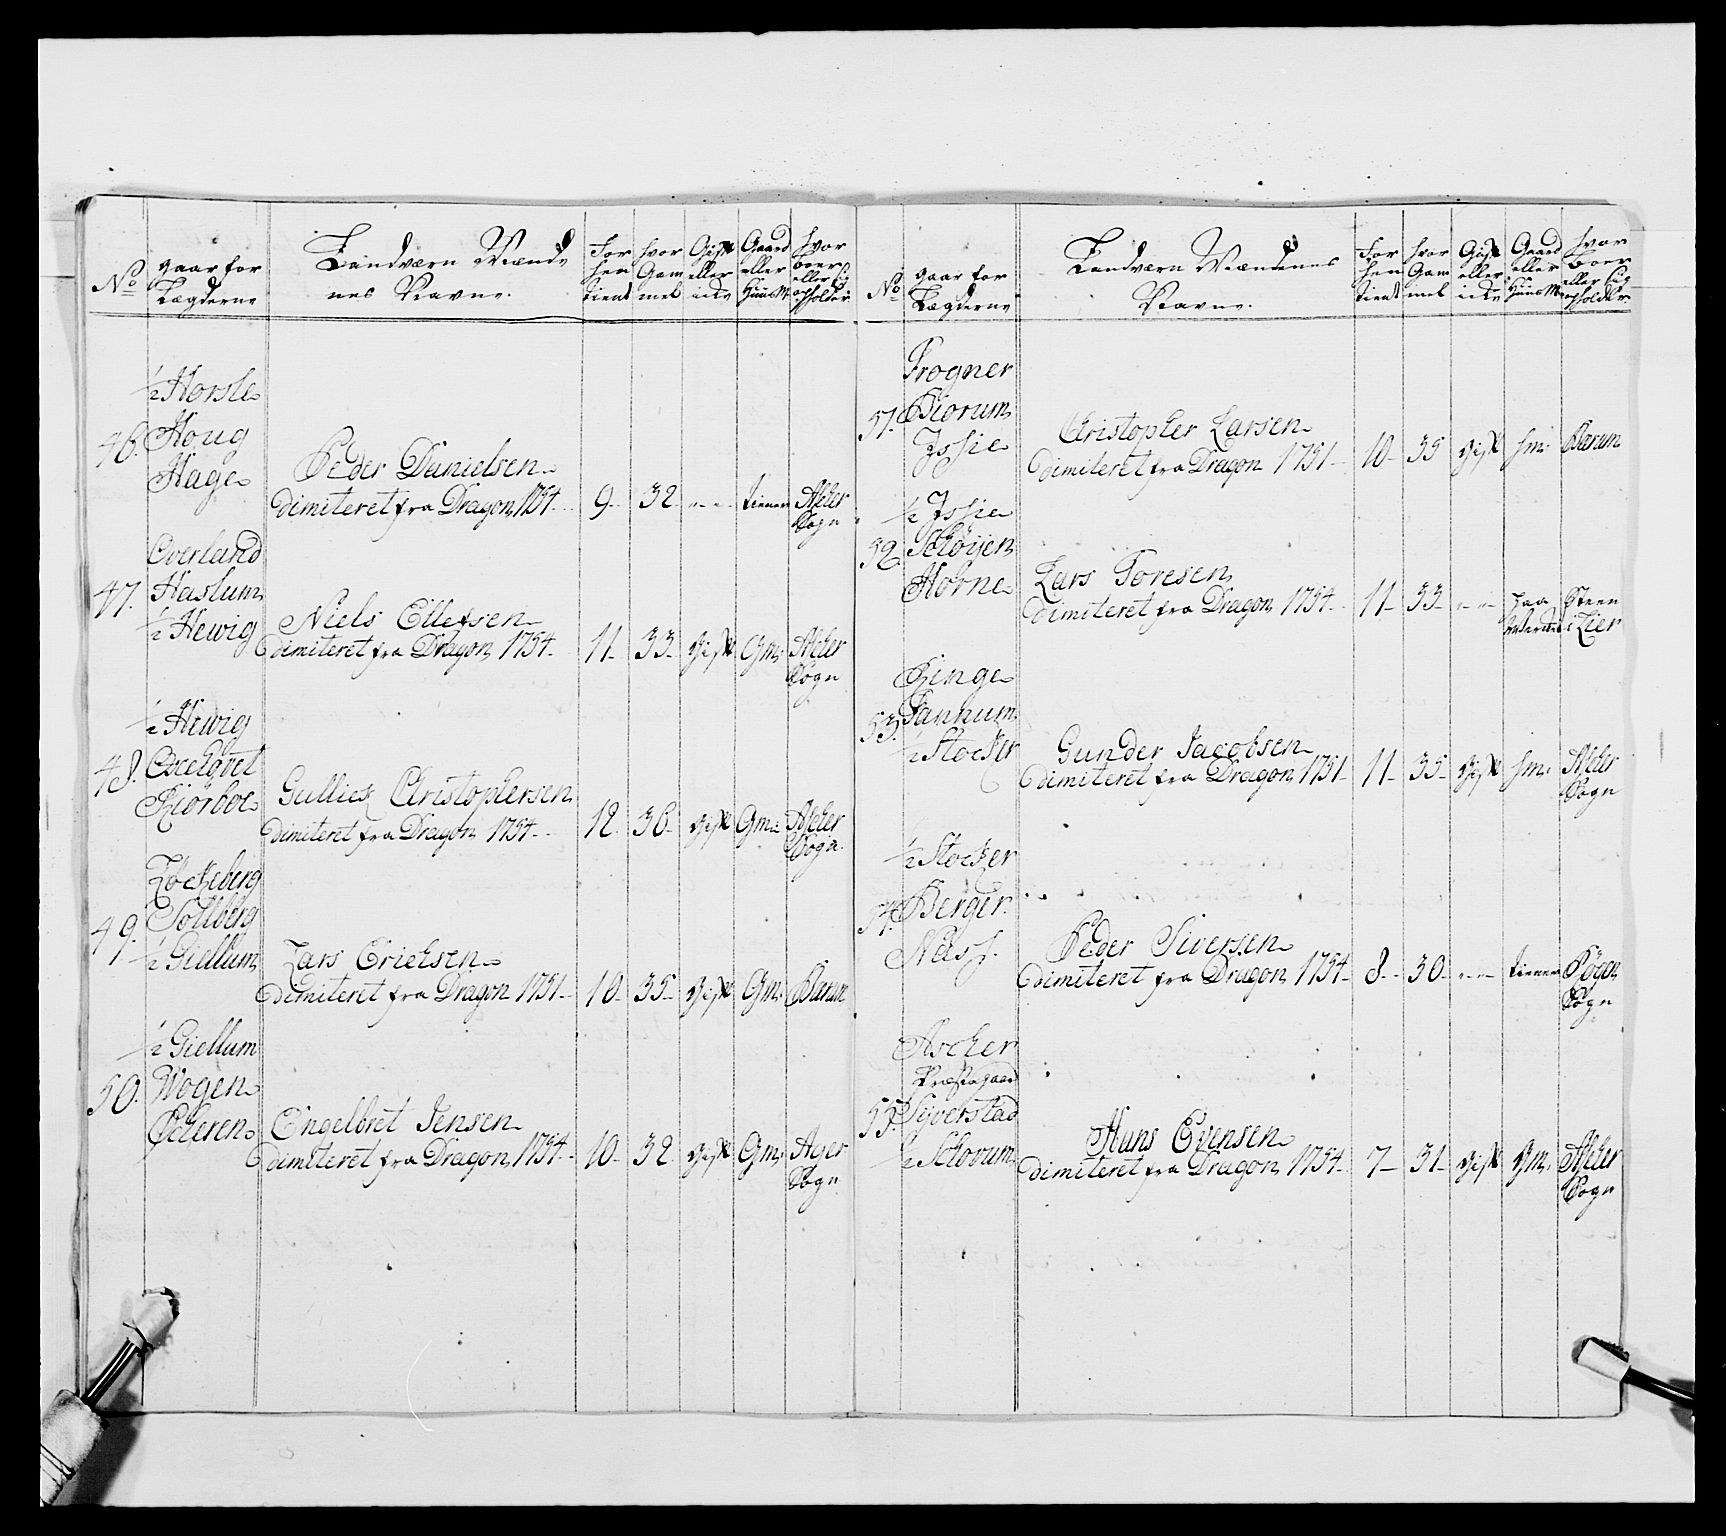 No
gaar for
Lægderne
Landværn Mænde
nes Navne.
For
hen
tient
hvor
Gam
mel
Gift
eller
icke
Gaard
eller
Huus M
hvor
boer
eller sig
opholder
1/2 Horsle
46. Houg
Hage
Peder Danielsen
dimiteret fra Dragon 1754 9 32 - - tiener Asker
Sogn
Overland
47. Haslum
1/2 Hewig
Niels Ellefsen
dimiteret fra Dragon 1754 11 33 Gift Gm: Asker
Sogn
1/2 Hewig
48.
Kiørboe
Gullich Christophersen
dimiteret fra Dragon 1754 12 36 Gift Gm: Asker
Sogn
Løckeberg
49. Sollberg
1/2 Giellum
Lars Erichsen
dimiteret fra Dragon 1751 10 35 Gift Gm: Barum
1/2 Giellum
50. Wogen
Engelbret Jensen
dimiteret fra Dragon 1754 10 32 Gift Gm: Ager
Sogn
No
gaar for
Lægderne
Landværn Mændenes
Navne.
For
hen
tient
hvor
Gam
mel
Gift
eller
icke
Gaard
eller
Huus M
hvor
boer
eller sig
opholder
Frogner
51. Biorum
Jssie
Christopher Larsen
dimiteret fra Dragon 1751 10 35 Gift hm: Barum
1/2 Jssie
52. Schøijen
Hovne
Lars Toresen
dimiteret fra Dragon 1754 11 33 - - paa Steen
Lier
Ringe
53. Tanhum
1/2 Stocker
Gunder Jacobsen
dimiteret fra Dragon 1751 11 35 Gift hm: Asker
Sogn
1/2 Stocker
54. Berger
Ness
Peder Siversen
dimiteret fra Dragon 1754 8 30 - - tiener
Sogn
Ascher
Præstegaard
55. Syverstad
1/2 Schovum
Hans Evensen
dimiteret fra Dragon 1754 7 31 Gift Gm: Asker
Sogn